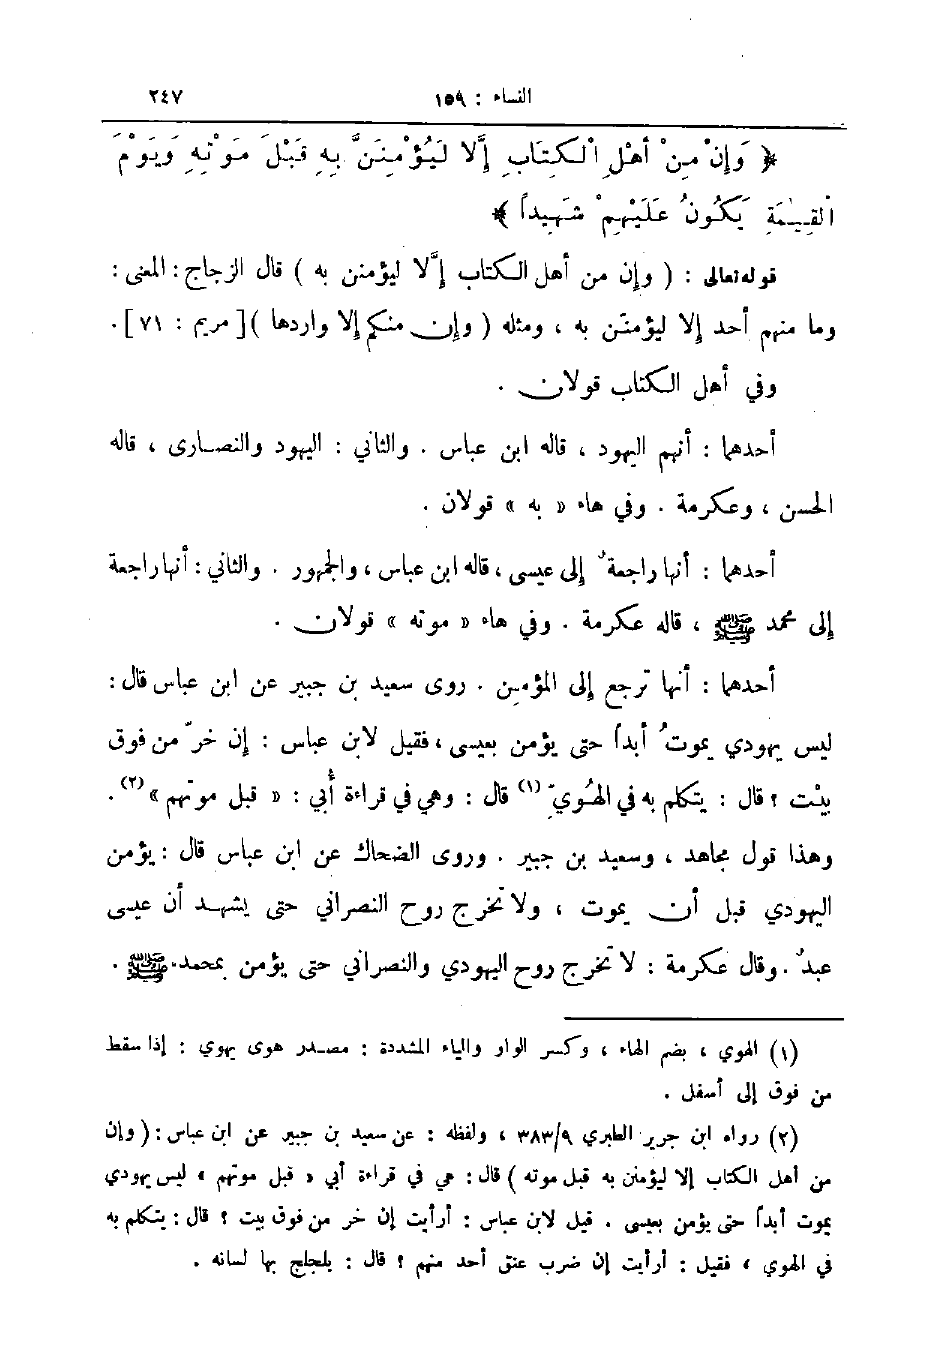 النساء : ١٥٩ ٢٤٧
﴿ وَإِنْ مِنْ أَهْلِ الْكِتَابِ إِلَّا لَيُؤْمِنَنَّ بِهِ قَبْلَ مَوْتِهِ وَيَوْمَ
الْقِيٰمَةِ يَكُونُ عَلَيْهِمْ شَهِيداً ﴾
قوله تعالى : ( وإن من أهل الكتاب إلَّا ليؤمنن به ) قال الزجاج : المعنى :
وما منهم أحد إلا ليؤمننّ به ، ومثله ( وإن منكم إلا واردها )[ مريم : ٧١ ] .
وفي أهل الكتاب قولان .
أحدهما : أنهم اليهود ، قاله ابن عباس . والثاني : اليهود والنصارى ، قاله
الحسن ، وعكرمة . وفي هاء « به » قولان .
أحدهما : أنها راجعةٌ إلى عيسى ، قاله ابن عباس ، والجمهور . والثاني : أنها راجعة
إلى محمد ﷺ ، قاله عكرمة . وفي هاء « موته » قولان .
أحدهما : أنها ترجع إلى المؤمِن . روى سعيد بن جبير عن ابن عباس قال :
ليس يهودي يموتُ أبداً حتى يؤمن بعيسى ، فقيل لابن عباس : إن خرَّ من فوق
بيْت ؟ قال : يتكلم به في الهُوِيّ (١) قال : وهي في قراءة أُبي : « قبل موتهم » (٢) .
وهذا قول مجاهد ، وسعيد بن جبير . وروى الضحاك عن ابن عباس قال : يؤمن
اليهودي قبل أن يموت ، ولا تخرج روح النصراني حتى يشهد أن عيسى
عبدٌ . وقال عكرمة : لا تخرج روح اليهودي والنصراني حتى يؤمن بمحمد ﷺ .
(١) الهوي ، بضم الهاء ، وكسر الواو والياء المشددة : مصدر هوى يهوي : إذا سقط
من فوق إلى أسفل .
(٢) رواه ابن جرير الطبري ٣٨٣/٩ ، ولفظه : عن سعيد بن جبير عن ابن عباس : ( وإن
من أهل الكتاب إلا ليؤمنن به قبل موته ) قال : هي في قراءة أبي « قبل موتهم » ليس يهودي
يموت أبداً حتى يؤمن بعيسى . قيل لابن عباس : أرأيت إن خر من فوق بيت ؟ قال : يتكلم به
في الهوي ، فقيل : أرأيت إن ضرب عنق أحد منهم ؟ قال : يلجلج بها لسانه .